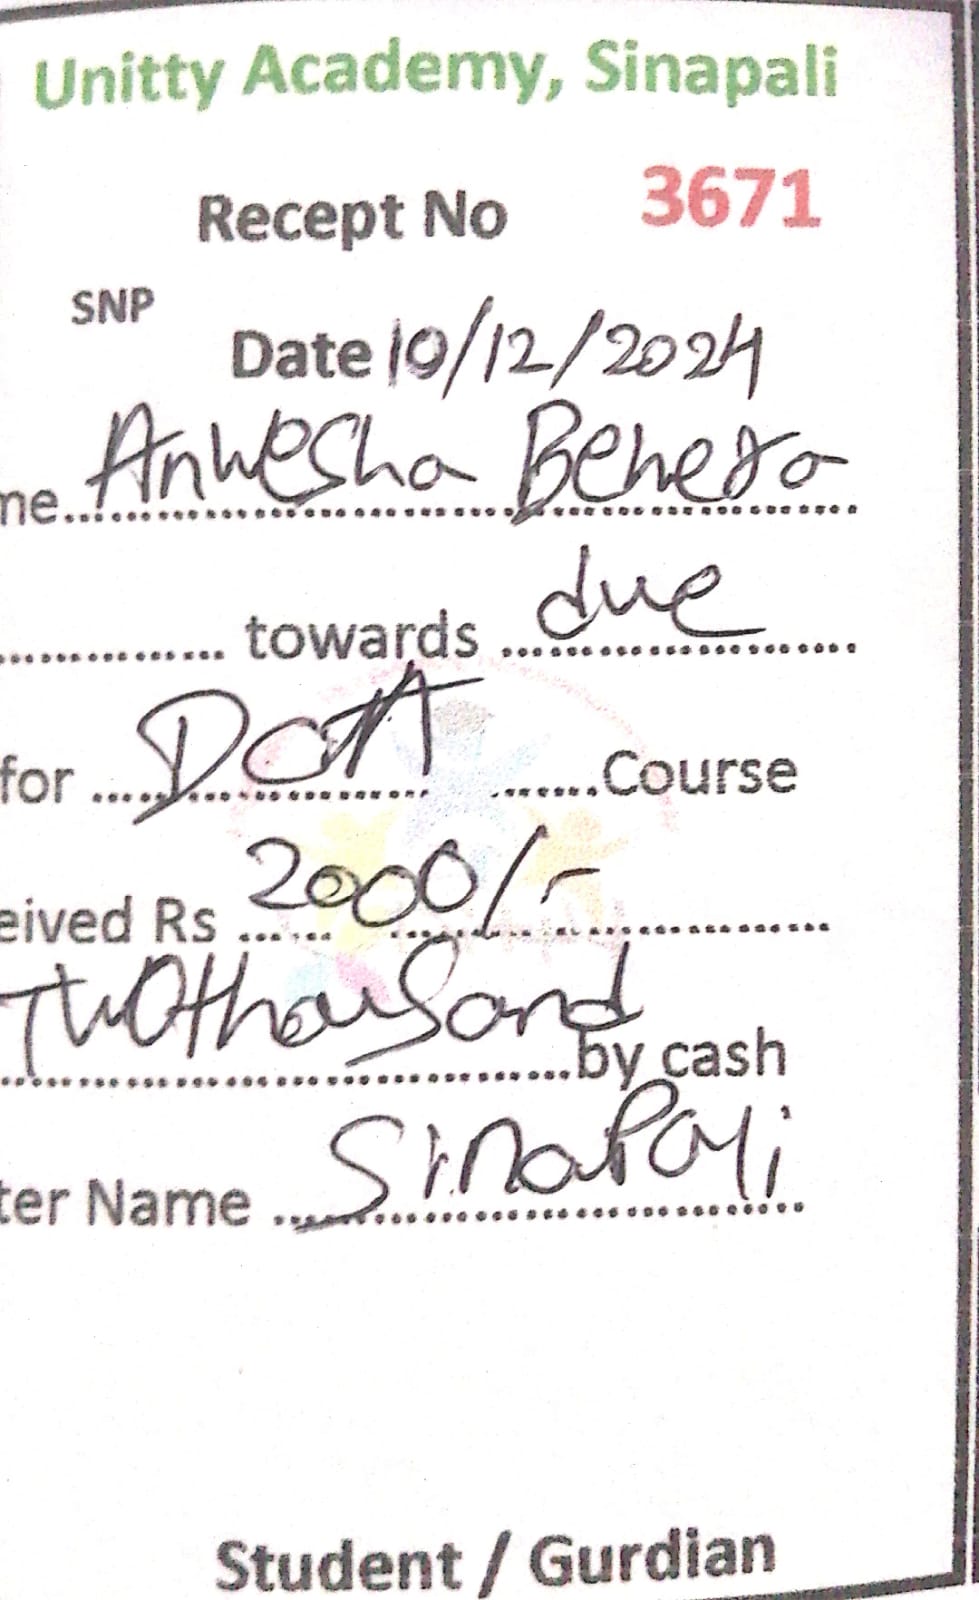 Unitty Academy, Sinapali
Recept No 3671
SNP
Date 10/12/2024
me Anwesha Behera
towards due
for DCA Course
eived Rs 2000/-
Twothousand by cash
ter Name Sinapali
Student / Gurdian